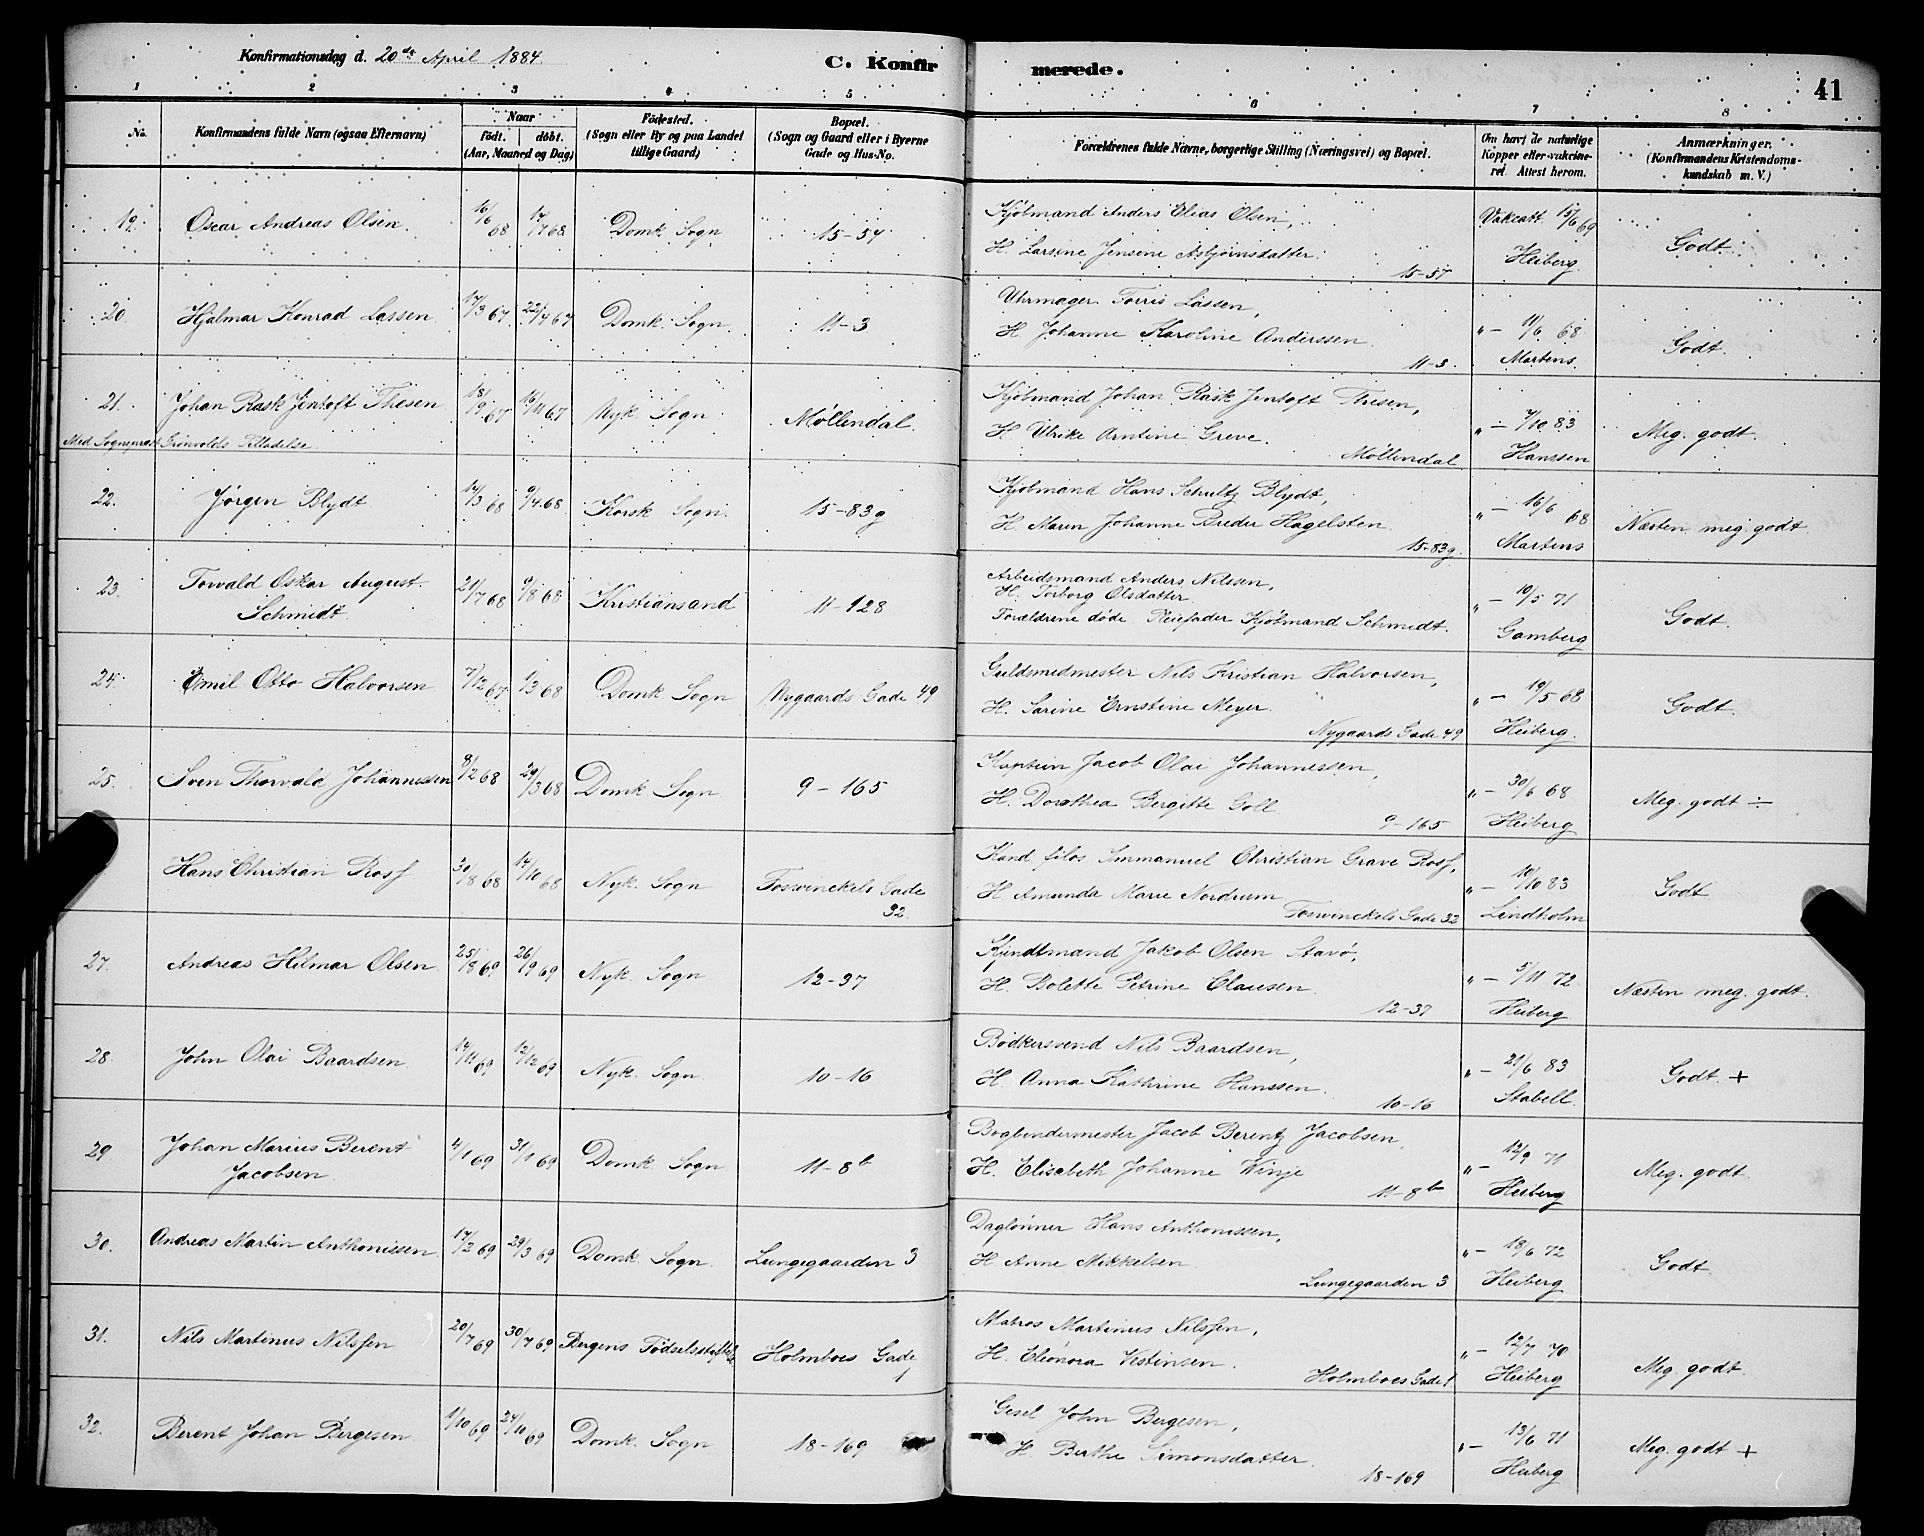 Konfirmationsdag d. 20de April 1884.
C. Konfirmerede.
41
1 2 3 4 5 6 7 8
No.
Konfirmandens fulde Navn (ogsaa Efternavn)
Naar
født. døbt.
(Aar, Maaned og Dag)
Fødested.
(Sogn eller By og paa Landet
tillige Gaard)
Bopæl.
(Sogn og Gaard eller i Byerne
Gade og Hus-No.
Forældrenes fulde Navne, borgerlige Stilling (Næringsvei) og Bopæl.
Om havt de naturlige
Kopper efter vakcine-
ret. Attest herom.
Anmærkninger.
(Konfirmandens Kristendoms-
kundskab m. V.)
19. Oscar Andreas Olsen. 16/6 68 17/7 68 Domk. Sogn 15-57
Kjøbmand Anders Elias Olsen,
H. Larsine Jensine Asbjørnsdatter.
15-57
Vakcatt 15/6 69
Heiberg.
Godt.
20. Hjalmar Konrad Lassen. 17/3 67 22/4 67 Domk. Sogn. 11-3
Uhrmager Torris Lassen,
H. Johanne Karoline Anderssen.
11-3.
„ — 11/6 68
Martens.
Godt.
21. Johan Rask Jentoft Thesen. 18/9 67 16/11 67 Nyk. Sogn. Møllendal.
Med Sogneprest Grønvolds Tilladelse.
Kjøbmand Johan Rask Jentoft Thesen,
H. Ulrike Arntine Greve.
Møllendal
„ — 7/10 83
Hanssen
Meg. godt.
22. Jørgen Blydt 14/3 68 9/4 68 Korsk. Sogn. 15-83g
Kjøbmand Hans Schultz Blydt,
H. Maren Johanne Breder Hagelsten.
15-83g.
„ — 16/6 68
Martens
Næsten meg. godt.
23. Torvald Oskar August
Schmidt. 21/7 68 9/8 68 Kristiansand 11-128
Arbeidsmand Anders Nilssen,
H. Torborg Olsdatter.
Forældrene døde. Pleiefader Kjøbmand Schmidt.
„ — 10/5 71
Gamberg
Godt.
24. Emil Otto Halvorsen 7/12 67 1/3 68 Domk. Sogn Nygaards Gade 49
Guldsmedmester Nils Kristian Halvorsen,
H. Sarine Ernstine Meyer.
Nygaards Gade 49
„ — 19/5 68
Heiberg.
Godt.
25. Sven Thorvald Johannessen 8/2 68 29/3 68 Domk. Sogn 9-165
Kaptein Jacob Olai Johannessen,
H. Dorothea Bergitte Goll
9-165
„ — 30/6 68
Heiberg
Meg. godt ÷
Hans Christian Rosf 30/8 68 14/10 68 Nyk. Sogn Foswinckels Gade
32.
Kand. filos. Immanuel Christian Grave Rosf,
H. Amunda Marie Nordrum
Foswinckels Gade 32
„ — 10/10 83
Lindholm
Godt
27. Andreas Hilmar Olsen. 25/8 69 26/9 69 Nyk. Sogn 12-37
Kjendtmand Jakob Olsen Stavø,
H. Bolette Petrine Clausen.
12-37
„ — 5/11 72
Heiberg
Næsten meg. godt.
28. John Olai Baardsen. 14/11 69 12/12 69 Nyk. Sogn. 10-16
Bødkersvend Nils Baardsen,
H. Anna Kathrine Hanssen.
10-16
„ — 21/6 83
Stabell.
Godt. +
29 Johan Marius Berent
Jacobsen. 4/1 69 31/1 69 Domk. Sogn 11-8b
Bogbindermester Jacob Berentz Jacobsen,
H. Elisabeth Johanne Winje
11-8b
„ — 12/9 71
Heiberg
Meg. godt
30. Andreas Martin Anthonissen. 17/2 69 29/3 69 Domk. Sogn. Lungegaarden 3
Daglønner Hans Anthonissen,
H. Anne Mikkelsen.
Lungegaarden 3
„ — 18/6 72
Heiberg
Godt
31. Nils Martinus Nilssen 20/7 69 30/7 69 Bergens Fødselsstiftelse Holmboes Gade
1
Matros Martinus Nilssen,
H. Eleonora Vestinsen.
Holmboes Gade 1
„ — 12/7 70
Heiberg
Meg. godt.
32. Berent Johan Bergesen. 1/10 69 24/10 69 Domk. Sogn 18-169
Gesel John Bergesen,
H. Berthe Simonsdatter.
18-169
„ — 13/6 71
Heiberg
Meg. godt +